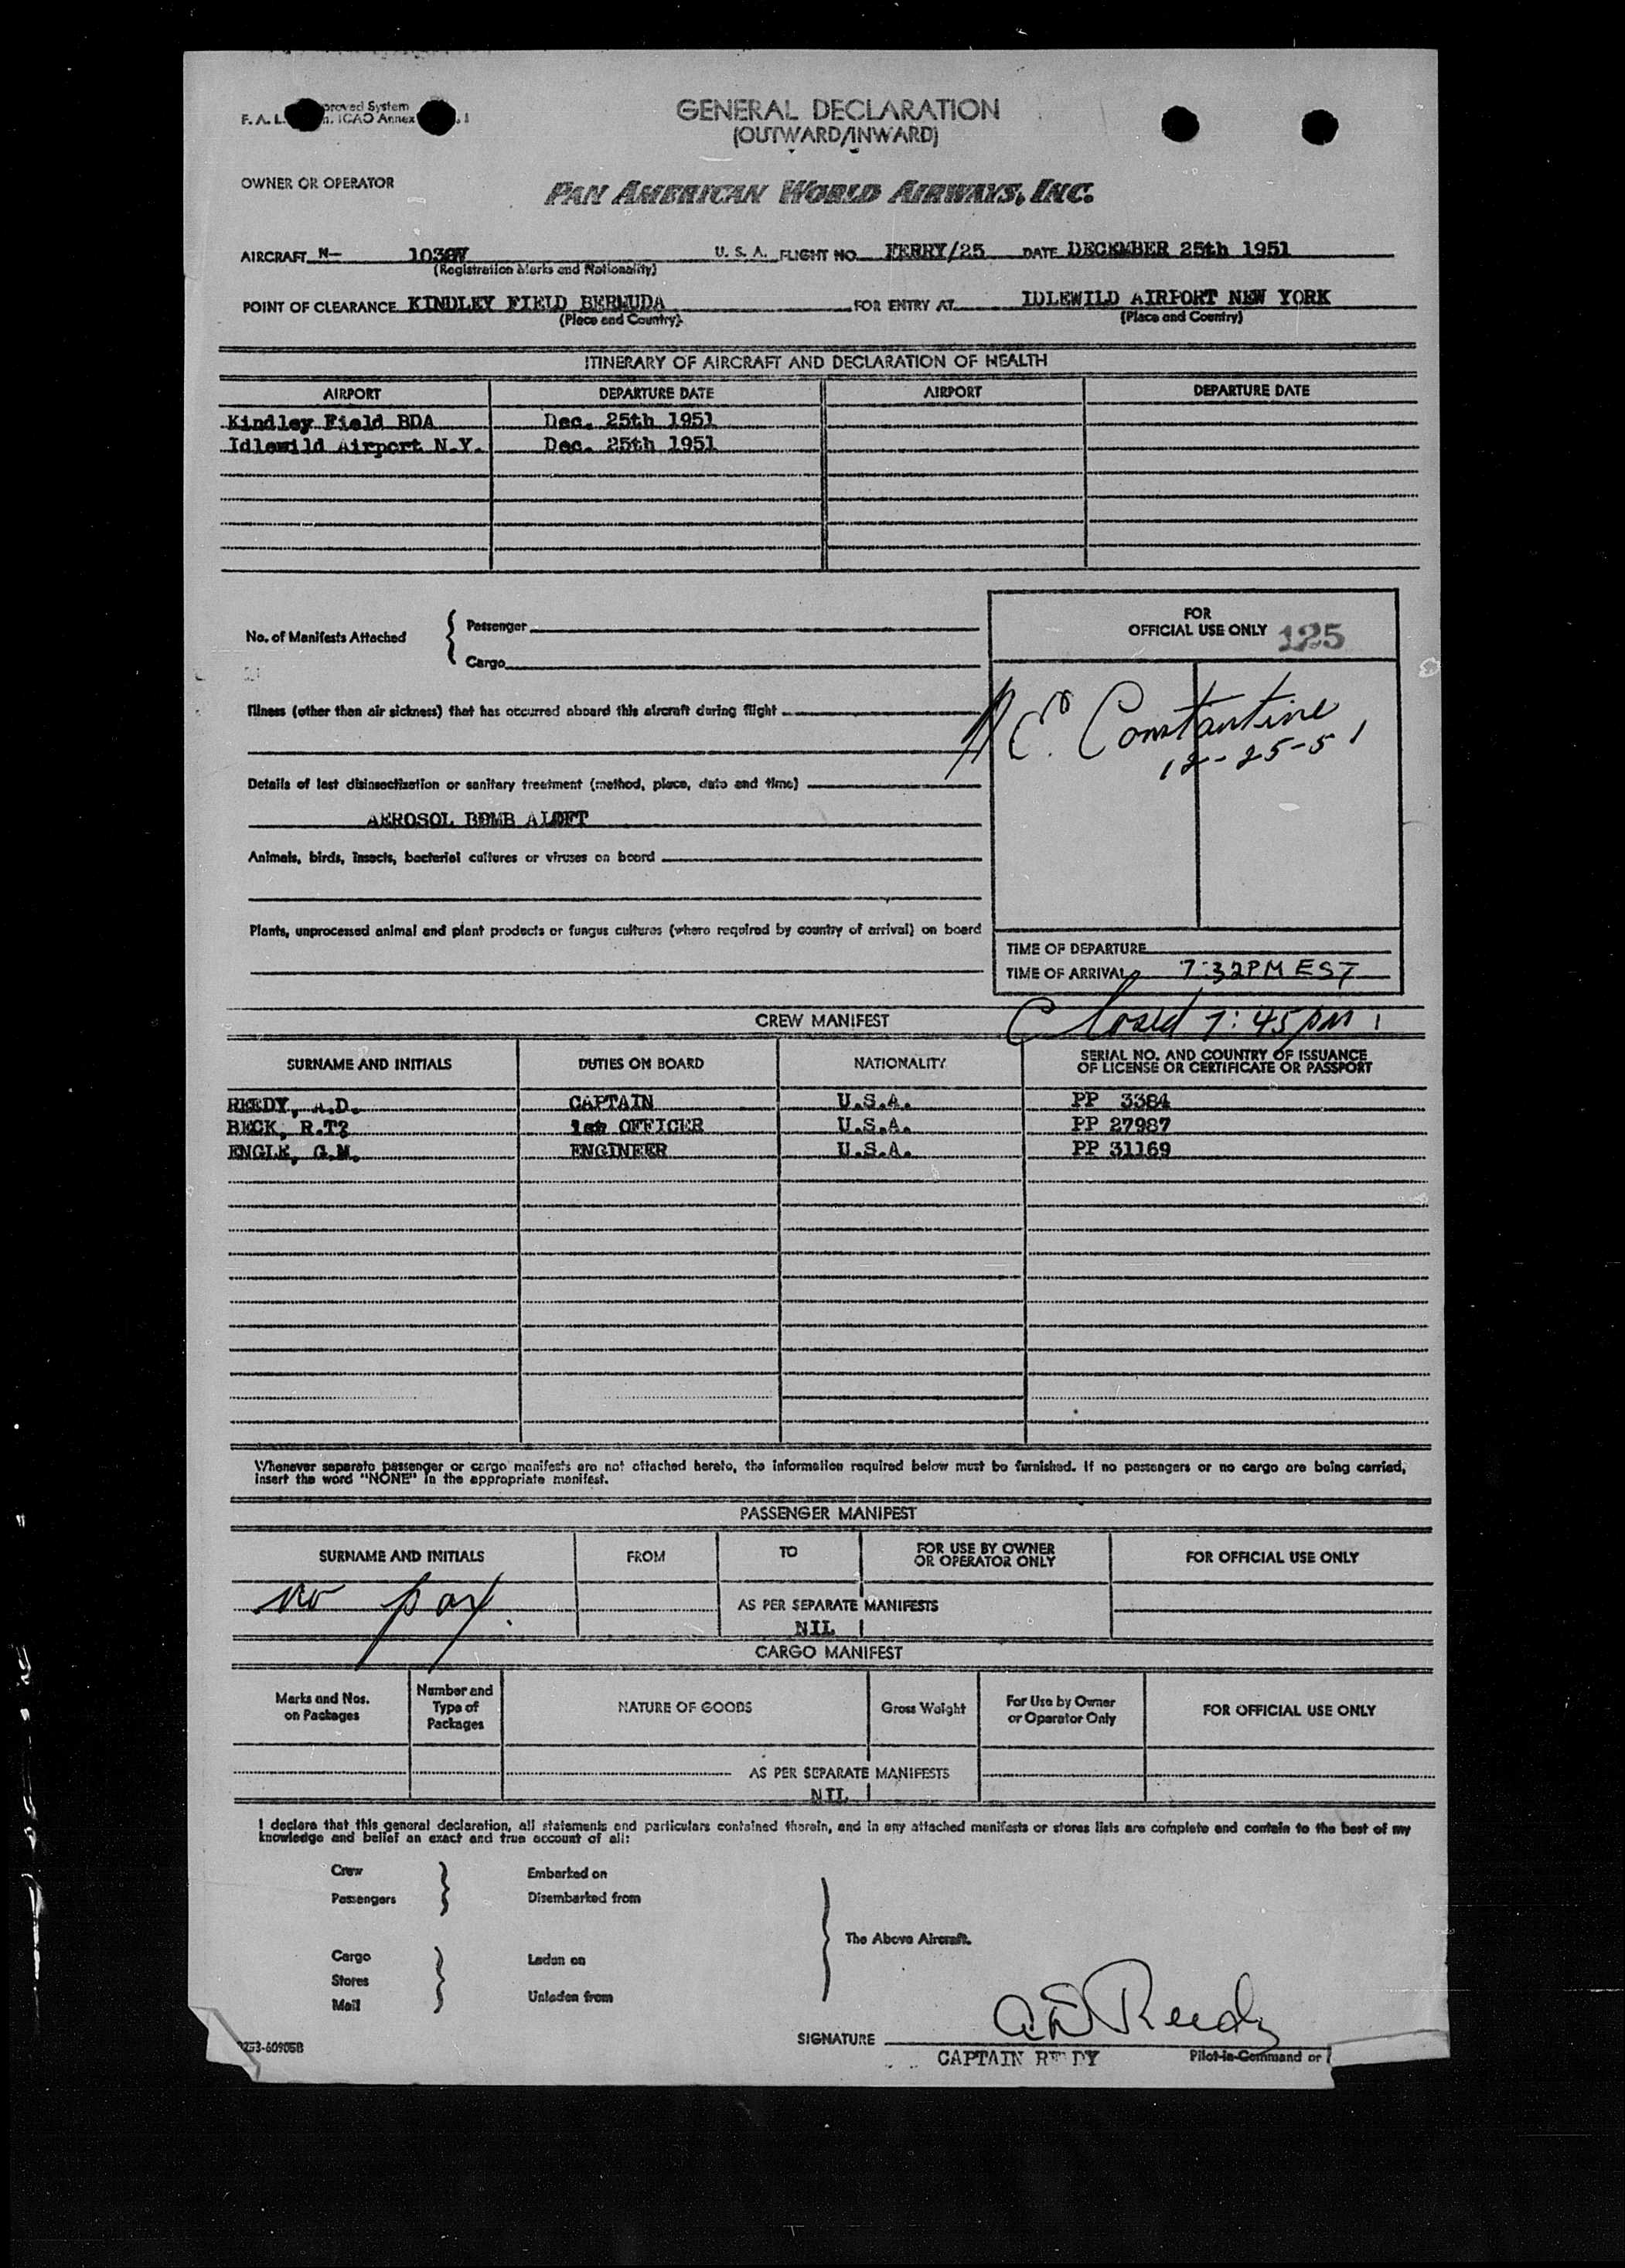 proved System
F. A. L. n. ICAO Annex . 1
GENERAL DECLARATION
(OUTWARD/INWARD)
OWNER OR OPERATOR
PAN AMERICAN WORLD AIRWAYS, INC.
AIRCRAFT N- 1038V U. S. A. FLIGHT NO. FERRY/25 DATE DECEMBER 25th 1951
(Registration Marks and Nationality)
POINT OF CLEARANCE KINDLEY FIELD BERMUDA FOR ENTRY AT IDLEWILD AIRPORT NEW YORK
(Place and Country) (Place and Country)
ITINERARY OF AIRCRAFT AND DECLARATION OF HEALTH
AIRPORT DEPARTURE DATE AIRPORT DEPARTURE DATE
Kindley Field BDA Dec. 25th 1951
Idlewild Airport N.Y. Dec. 25th 1951
FOR
OFFICIAL USE ONLY 125
No. of Manifests Attached { Passenger
Cargo
Illness (other than air sickness) that has occurred aboard this aircraft during flight
Constantine
12-25-51
Details of last disinsectization or sanitary treatment (method, place, date and time)
AEROSOL BOMB ALOFT
Animals, birds, insects, bacterial cultures or viruses on board
Plants, unprocessed animal and plant products or fungus cultures (where required by country of arrival) on board
TIME OF DEPARTURE
TIME OF ARRIVAL 7:32PM EST
CREW MANIFEST Closed 7:45 pm
SURNAME AND INITIALS DUTIES ON BOARD NATIONALITY SERIAL NO. AND COUNTRY OF ISSUANCE
OF LICENSE OR CERTIFICATE OR PASSPORT
REEDY, A.D. CAPTAIN U.S.A. PP 3384
BECK, R.T? 1st OFFICER U.S.A. PP 27987
ENGLE, G.M. ENGINEER U.S.A. PP 31169
Whenever separate passenger or cargo manifests are not attached hereto, the information required below must be furnished. If no passengers or no cargo are being carried,
insert the word "NONE" in the appropriate manifest.
PASSENGER MANIFEST
SURNAME AND INITIALS FROM TO FOR USE BY OWNER
OR OPERATOR ONLY FOR OFFICIAL USE ONLY
no pax.
AS PER SEPARATE MANIFESTS
NIL
CARGO MANIFEST
Marks and Nos.
on Packages
Number and
Type of
Packages
NATURE OF GOODS
Gross Weight
For Use by Owner
or Operator Only
FOR OFFICIAL USE ONLY
AS PER SEPARATE MANIFESTS
NIL
I declare that this general declaration, all statements and particulars contained therein, and in any attached manifests or stores lists are complete and contain to the best of my
knowledge and belief an exact and true account of all:
Crew } Embarked on
Passengers Disembarked from
The Above Aircraft.
Cargo } Laden on
Stores
Mail Unladen from
SIGNATURE A D Reedy
CAPTAIN REEDY Pilot-in-Command or
0253-60905B